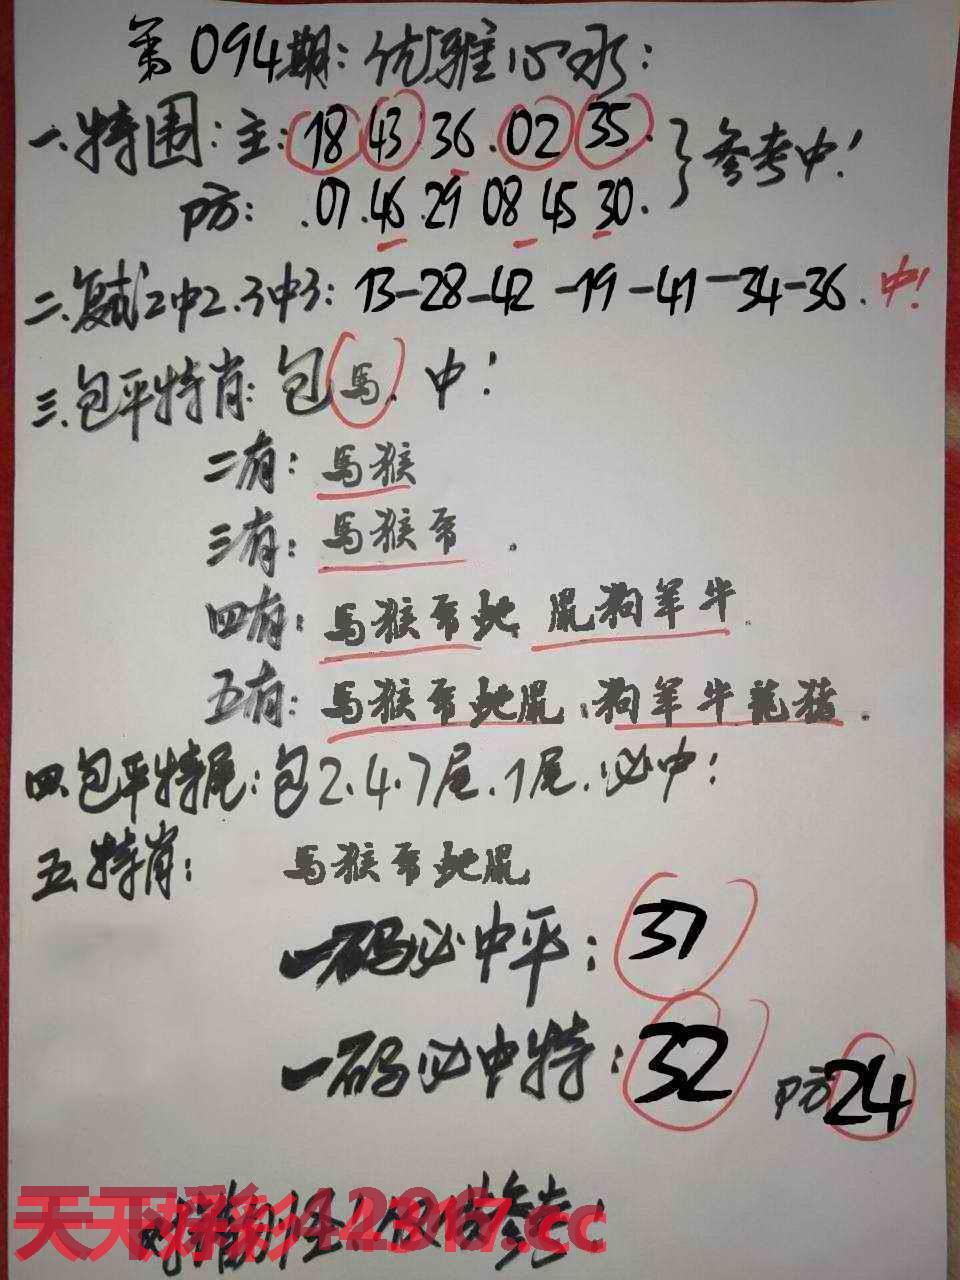 第094期:优雅心水:
一.特围:主:18 43 36.02 35.}参考中!
防:.07.46.29 08 45 30.
二.复试2中2.3中3:13-28-42-19-41-34-36.中!
三.包平特肖:包馬.中!
二有:馬猴
三有:馬猴
四有:馬猴 鼠狗羊牛.
五有:馬猴 狗羊牛龍猪.
四.包平特尾:包2.4.7尾.1尾.必中!
五.特肖:馬猴
一码必中平:37
一码必中特:32 防24
天天
.cc